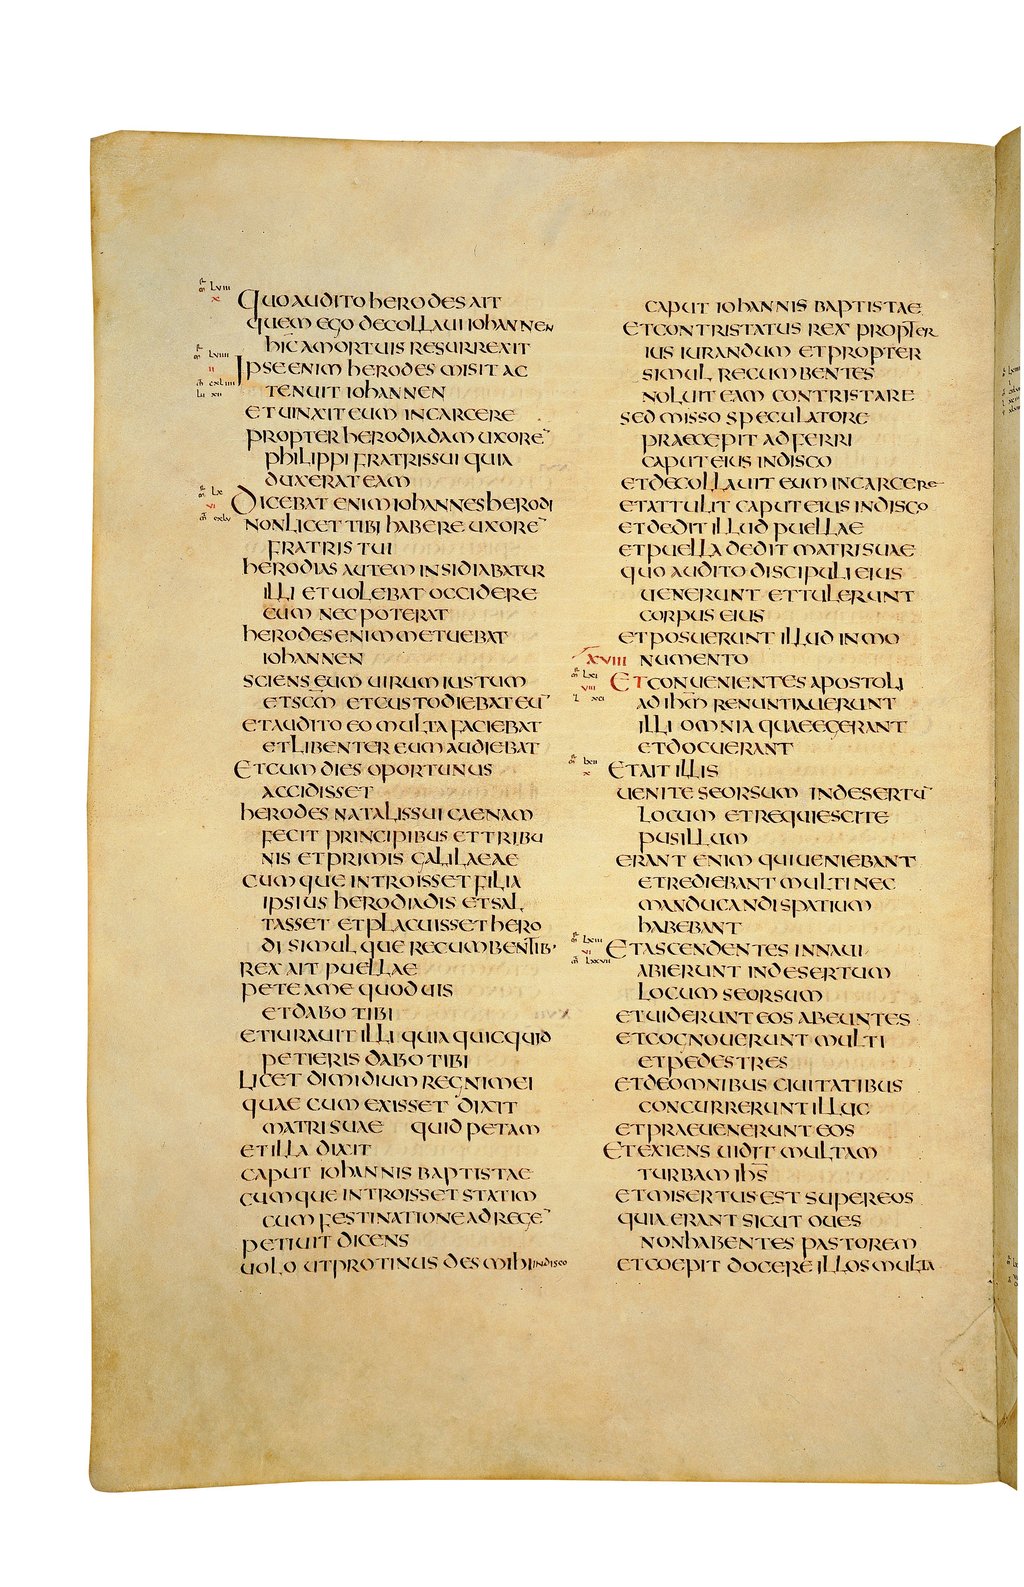 LVIII
X
QUO AUDITO HERODES AIT
QUEM EGO DECOLLAUI IOHANNEN
HIC A MORTUIS RESURREXIT
LVIIII
II
IPSE ENIM HERODES MISIT AC
TENUIT IOHANNEN
ET UINXIT EUM IN CARCERE
PROPTER HERODIADAM UXORE¯
PHILIPPI FRATRIS SUI QUIA
DUXERAT EAM
LX
VI
DICEBAT ENIM IOHANNES HERODI
NON LICET TIBI HABERE UXORE¯
FRATRIS TUI
HERODIAS AUTEM INSIDIABATUR
ILLI ET UOLEBAT OCCIDERE
EUM NEC POTERAT
HERODES ENIM METUEBAT
IOHANNEN
SCIENS EUM UIRUM IUSTUM
ET SC̅M ET CUSTODIEBAT EU¯
ET AUDITO EO MULTA FACIEBAT
ET LIBENTER EUM AUDIEBAT
ET CUM DIES OPORTUNUS
ACCIDISSET
HERODES NATALIS SUI CAENAM
FECIT PRINCIPIBUS ET TRIBU
NIS ET PRIMIS GALILAEAE
CUMQUE INTROISSET FILIA
IPSIUS HERODIADIS ET SAL
TASSET ET PLACUISSET HERO
DI SIMULQUE RECUMBENTIB·
REX AIT PUELLAE
PETE A ME QUOD UIS
ET DABO TIBI
ET IURAUIT ILLI QUIA QUICQUID
PETIERIS DABO TIBI
LICET DIMIDIUM REGNI MEI
QUAE CUM EXISSET DIXIT
MATRI SUAE QUID PETAM
ET ILLA DIXIT
CAPUT IOHANNIS BAPTISTAE
CUMQUE INTROISSET STATIM
CUM FESTINATIONE AD REGE¯
PETIUIT DICENS
UOLO UT PROTINUS DES MIHI IN DISCO
CAPUT IOHANNIS BAPTISTAE
ET CONTRISTATUS REX PROPTER
IUS IURANDUM ET PROPTER
SIMUL RECUMBENTES
NOLUIT EAM CONTRISTARE
SED MISSO SPECULATORE
PRAECEPIT ADFERRI
CAPUT EIUS IN DISCO
ET DECOLLAUIT EUM IN CARCERE
ET ATTULIT CAPUT EIUS IN DISCO
ET DEDIT ILLUD PUELLAE
ET PUELLA DEDIT MATRI SUAE
QUO AUDITO DISCIPULI EIUS
UENERUNT ET TULERUNT
CORPUS EIUS
ET POSUERUNT ILLUD IN MO
XVIII NUMENTO
LXI
VIII
ET CONUENIENTES APOSTOLI
AD IHM̅ RENUNTIAUERUNT
ILLI OMNIA QUAE EGERANT
ET DOCUERANT
LXII
X
ET AIT ILLIS
UENITE SEORSUM IN DESERTU¯
LOCUM ET REQUIESCITE
PUSILLUM
ERANT ENIM QUI UENIEBANT
ET REDIEBANT MULTI NEC
MANDUCANDI SPATIUM
HABEBANT
LXIII
VI
ET ASCENDENTES IN NAUI
ABIERUNT IN DESERTUM
LOCUM SEORSUM
ET UIDERUNT EOS ABEUNTES
ET COGNOUERUNT MULTI
ET PEDESTRES
ET DE OMNIBUS CIUITATIBUS
CONCURRERUNT ILLUC
ET PRAEUENERUNT EOS
ET EXIENS UIDIT MULTAM
TURBAM IHS̅
ET MISERTUS EST SUPER EOS
QUIA ERANT SICUT OUES
NON HABENTES PASTOREM
ET COEPIT DOCERE ILLOS MULTA